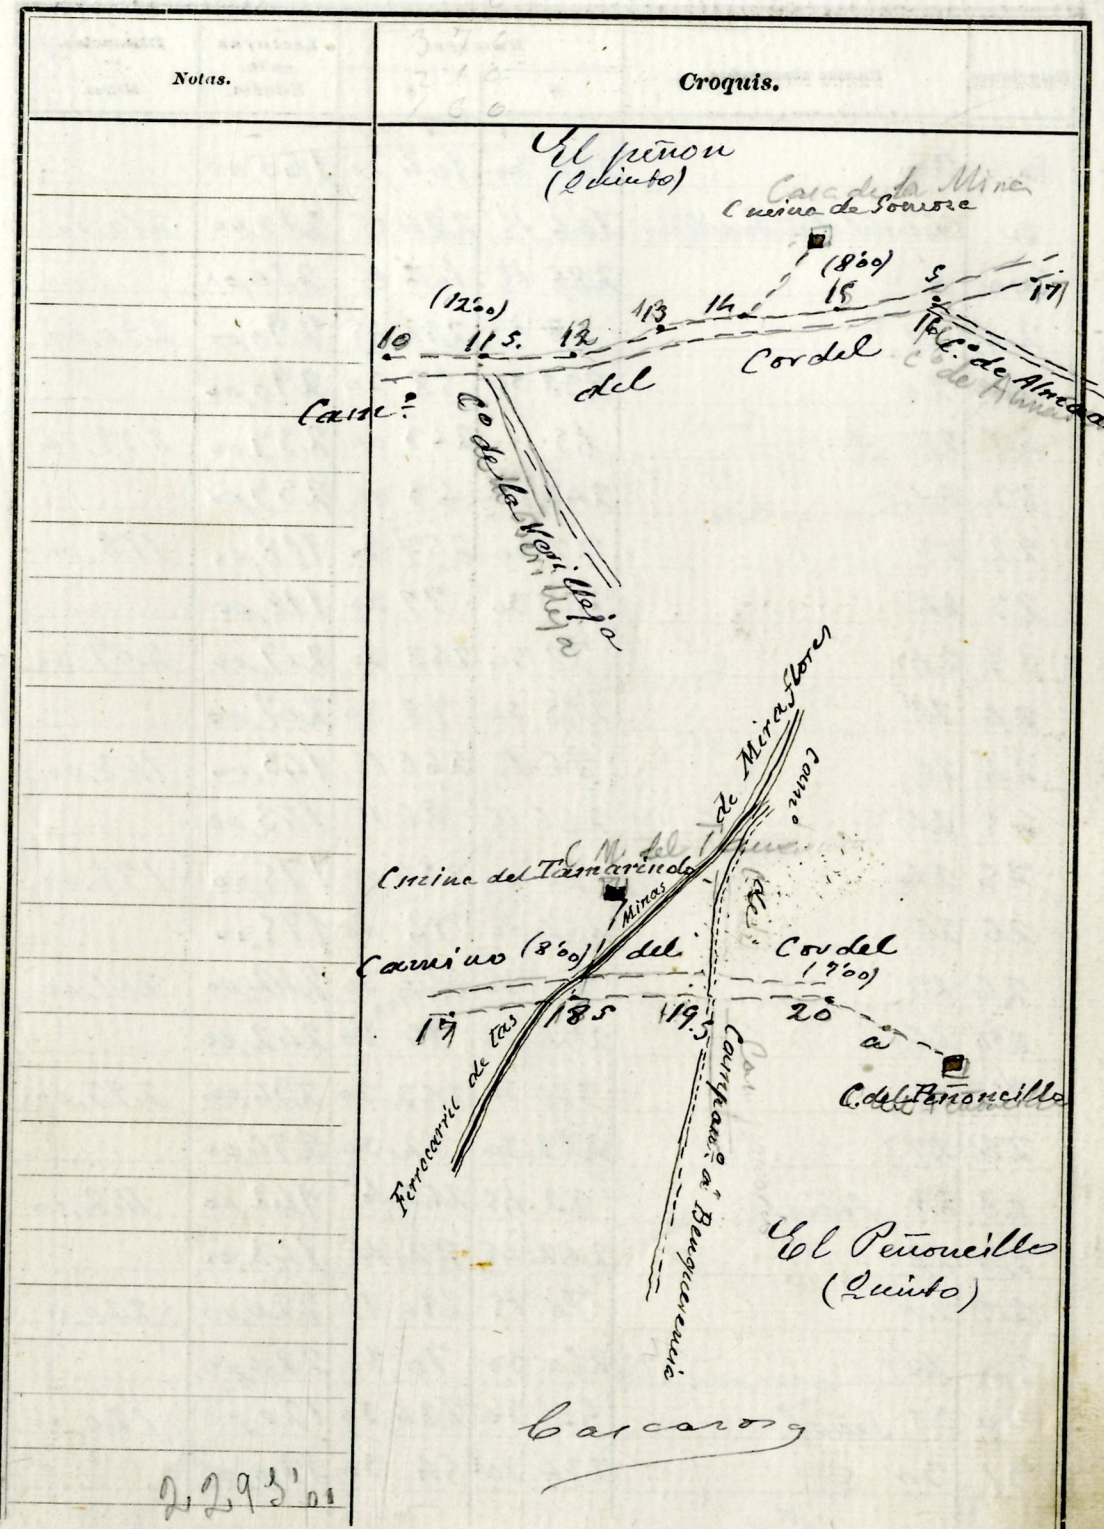 Notas.
Croquis.
El piñon
(Quinto)
Casa de la Mina
C mina de Somoza
(8'00)
(12'00)
10 11 s. 12 13 14 15 s 16 17
Cam.º del Cordel
C.º de Almed
Cº de la Verilleja
de Miraflores
Camº
C mina del Tamarindo
Minas
de
Camino (8'00) del Cordel
(7'00)
17 18 s 19 s 20
a
C. del Peñoncillo
Ferrocarril de las
Campanº. a Benquerencia
El Peñoncillo
(Quinto)
Cascarosa
2293'00